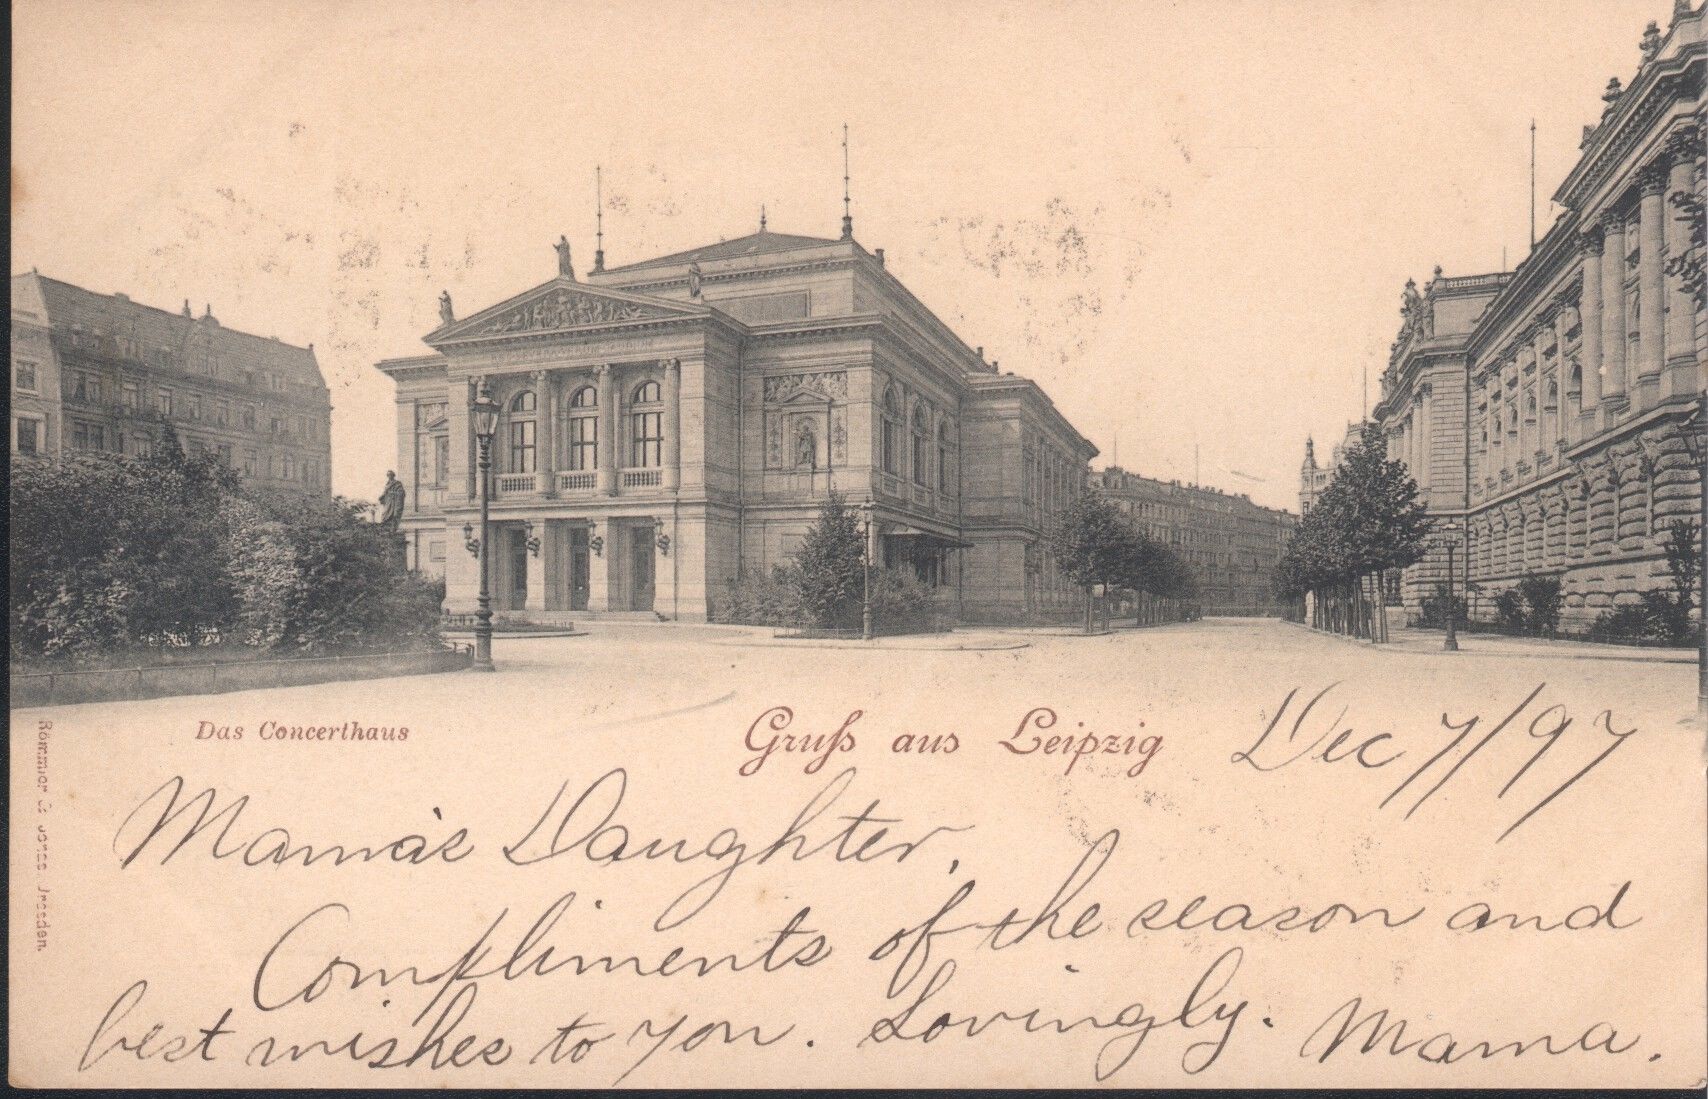 Das Concerthaus
Gruß aus Leipzig
Dec 7/97
Mama's Daughter,
Compliments of the season and
best wishes to you. Lovingly. Mama.
Römmler & Jonas, Dresden.